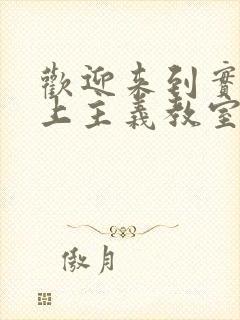 歡迎來到實
上主義教室
傲月